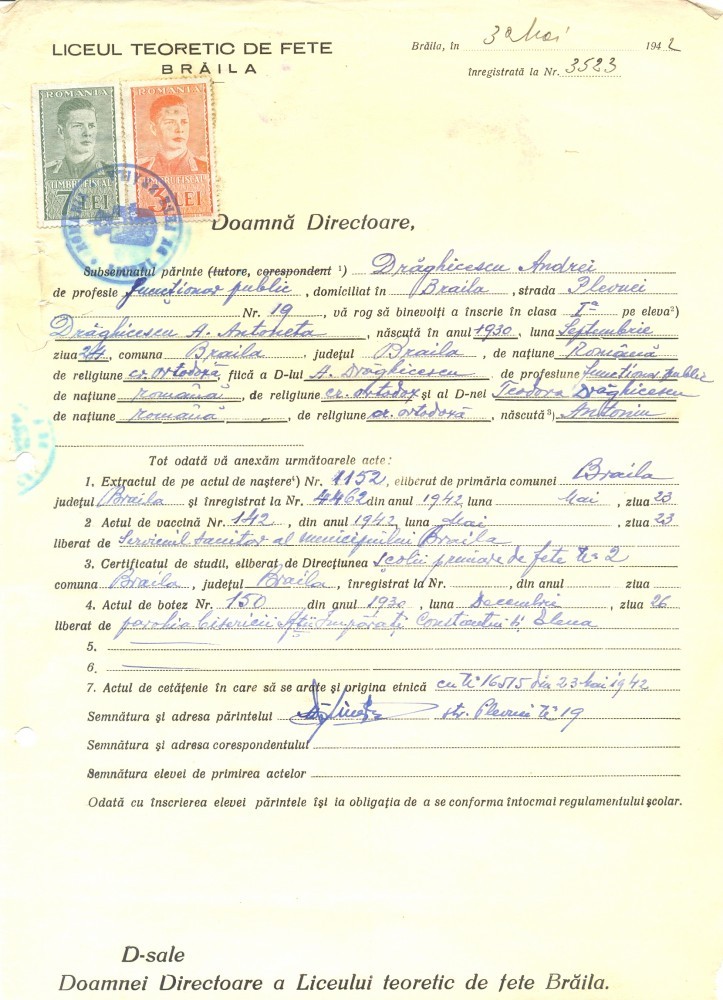 LICEUL TEORETIC DE FETE
BRĂILA
Brăila, în 3 Mai 1942
înregistrată la Nr. 3523
ROMANIA
TIMBRU FISCAL
7 LEI
ROMANIA
TIMBRU FISCAL
3 LEI
Doamnă Directoare,
Subsemnatul părinte (tutore, corespondent ¹) Drăghicescu Andrei
de profesie funcționar public, domiciliat în Braila, strada Plevnei
Nr. 19, vă rog să binevoiți a înscrie în clasa Iª pe eleva²)
Drăghicescu A. Antoneta, născută în anul 1930, luna Septembrie
ziua 24, comuna Braila, județul Braila, de națiune Română
de religiune cr. ortodoxă, fiică a D-lui A. Drăghicescu de profesiune funcționar public
de națiune română, de religiune cr. ortodox și al D-nei Teodora Drăghicescu
de națiune română, de religiune cr. ortodoxă, născută ³) Antoniu
Tot odată vă anexăm următoarele acte:
1. Extractul de pe actul de naștere⁴) Nr. 1152, eliberat de primăria comunei Braila
județul Braila și înregistrat la Nr. 4462 din anul 1942 luna Mai, ziua 23
2 Actul de vaccină Nr. 142, din anul 1942, luna Mai, ziua 23
liberat de Serviciul sanitar al municipiului Braila
3. Certificatul de studii, eliberat de Direcțiunea Școlii primare de fete Nº 2
comuna Braila, județul Braila, înregistrat la Nr. , din anul ziua
4. Actul de botez Nr. 150 din anul 1930, luna Decembrie, ziua 26
liberat de parohia bisericii Sfții Împărați Constantin și Elena
5.
6.
7. Actul de cetățenie în care să se arate și origina etnică cu Nº 16515 din 23 Mai 1942
Semnătura și adresa părintelui str. Plevnei Nº 19
Semnătura și adresa corespondentului
Semnătura elevei de primirea actelor
Odată cu înscrierea elevei părintele își ia obligația de a se conforma întocmai regulamentului școlar.
D-sale
Doamnei Directoare a Liceului teoretic de fete Brăila.